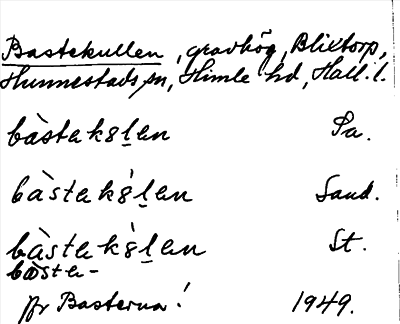 Bastekullen, gravhög, Blixtorp,
Hunnestads sn, Himle hd, Hall. l.
bàstak8l̠an Pa.
bàstak8̀l̠an Sand.
bàstak8̀l̠an St.
bàsta-
jfr Basterna! 1949.